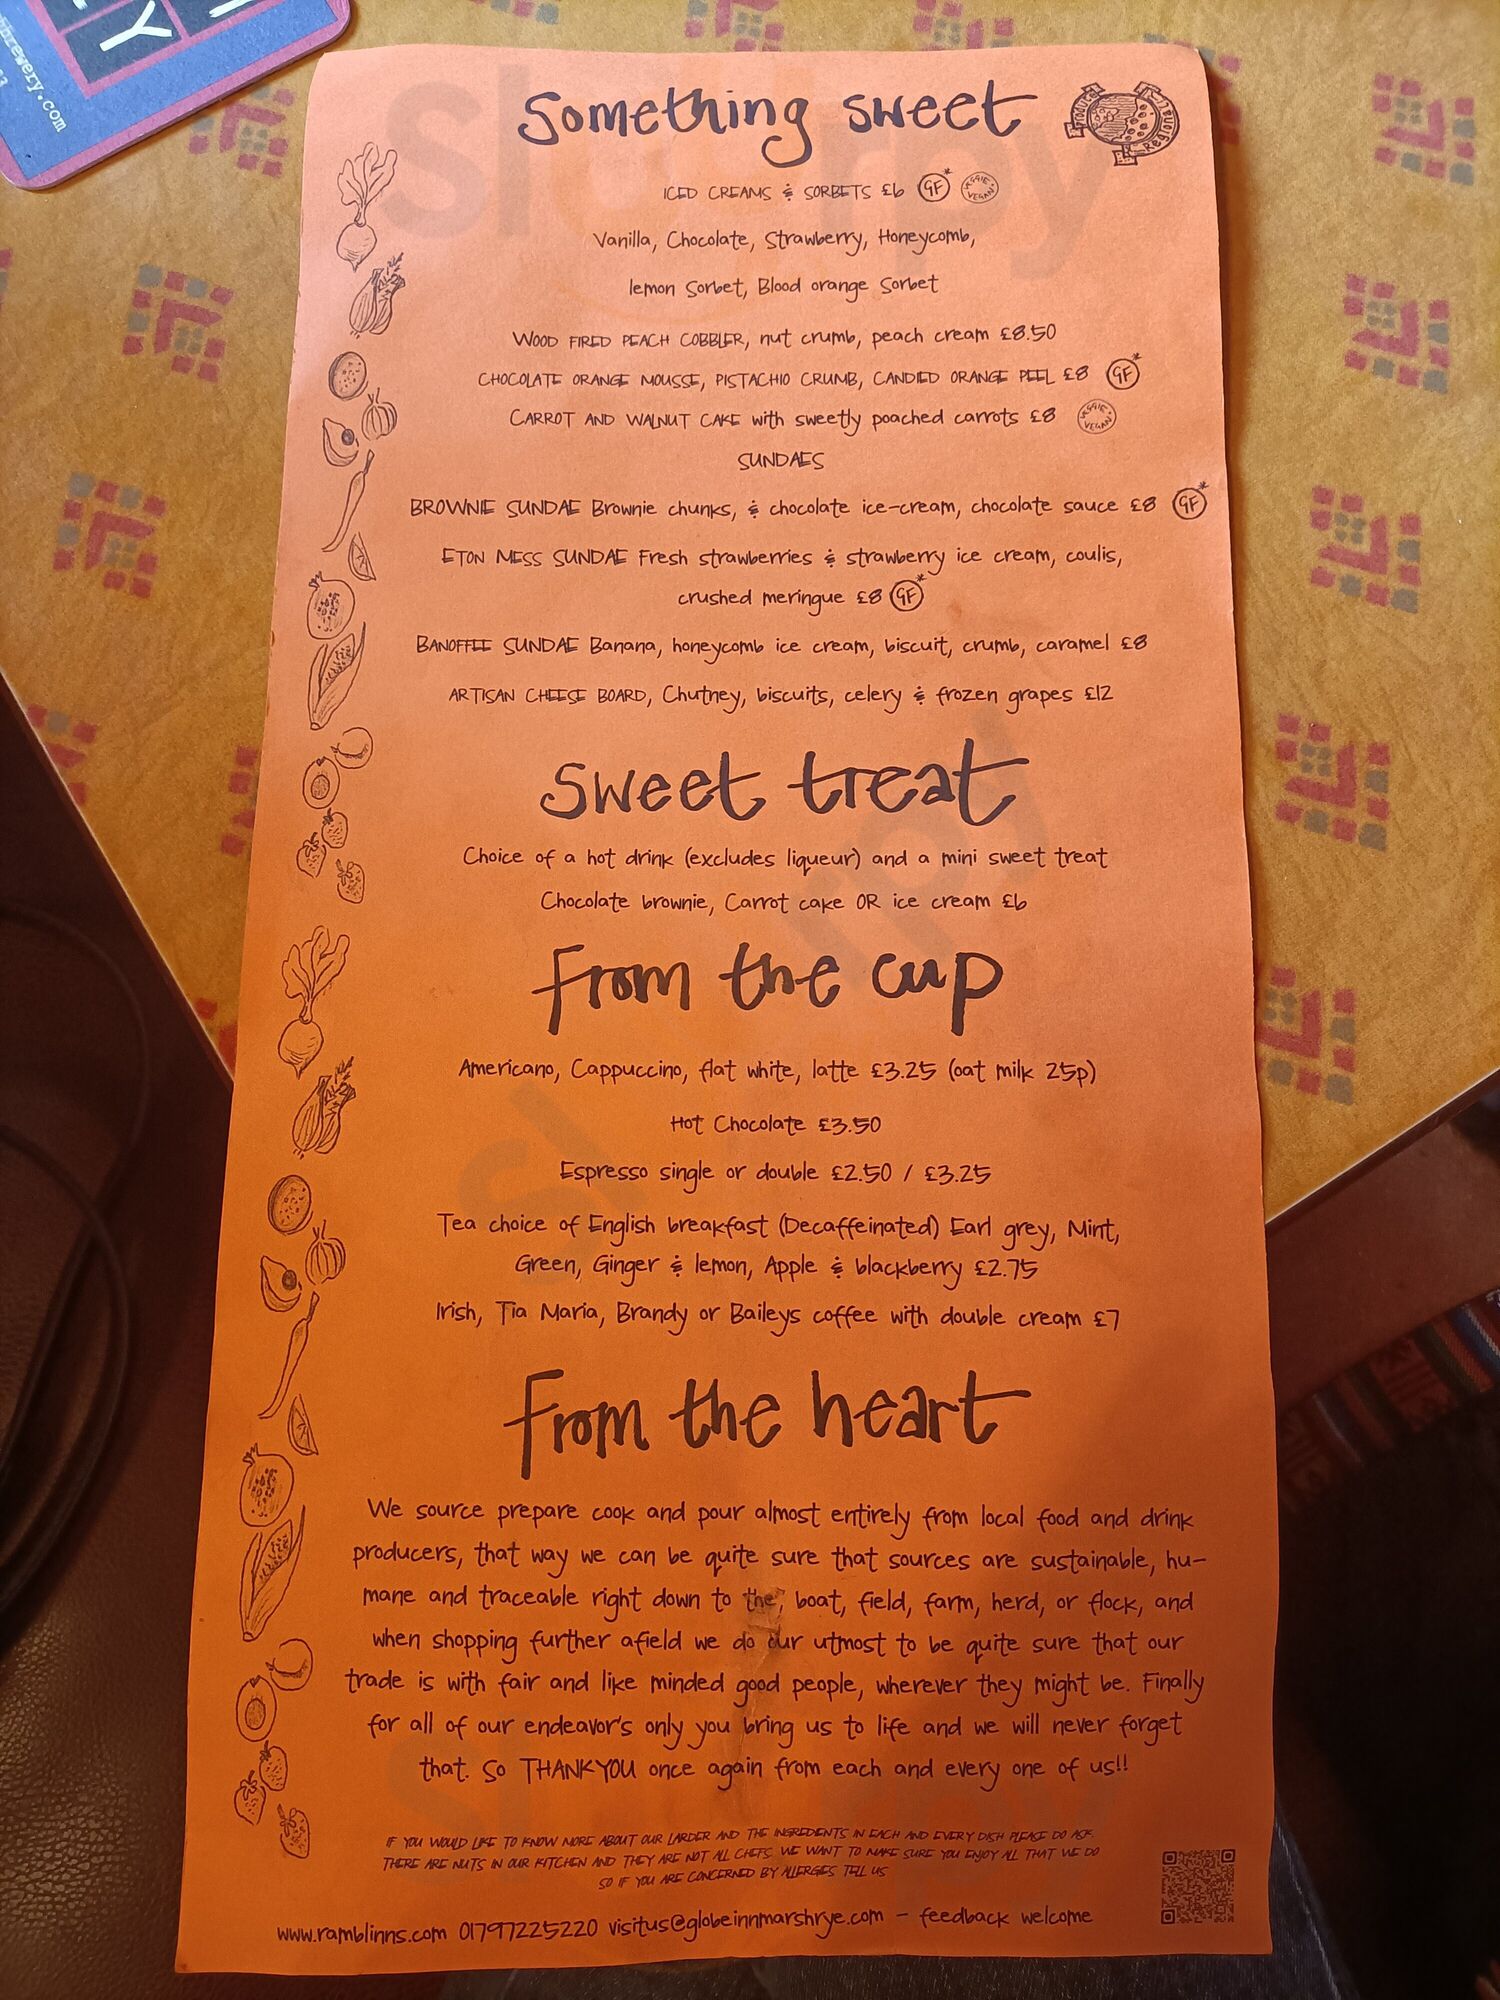 LY
brewery.com
Something sweet
Produce
Regional
ICED CREAMS & SORBETS £6 GF* VEGGIE VEGAN
Vanilla, Chocolate, Strawberry, Honeycomb,
lemon Sorbet, Blood orange Sorbet
WOOD FIRED PEACH COBBLER, nut crumb, peach cream £8.50
CHOCOLATE ORANGE MOUSSE, PISTACHIO CRUMB, CANDIED ORANGE PEEL £8 GF*
CARROT AND WALNUT CAKE with sweetly poached carrots £8 VEGGIE VEGAN
SUNDAES
BROWNIE SUNDAE Brownie chunks, & chocolate ice-cream, chocolate sauce £8 GF*
ETON MESS SUNDAE Fresh strawberries & strawberry ice cream, coulis,
crushed meringue £8 GF*
BANOFFEE SUNDAE Banana, honeycomb ice cream, biscuit, crumb, caramel £8
ARTISAN CHEESE BOARD, Chutney, biscuits, celery & frozen grapes £12
Sweet treat
Choice of a hot drink (excludes liqueur) and a mini sweet treat
Chocolate brownie, Carrot cake OR ice cream £6
From the cup
Americano, Cappuccino, flat white, latte £3.25 (oat milk 25p)
Hot Chocolate £3.50
Espresso single or double £2.50 / £3.25
Tea choice of English breakfast (Decaffeinated) Earl grey, Mint,
Green, Ginger & lemon, Apple & blackberry £2.75
Irish, Tia Maria, Brandy or Baileys coffee with double cream £7
From the heart
We source prepare cook and pour almost entirely from local food and drink
producers, that way we can be quite sure that sources are sustainable, hu-
mane and traceable right down to the, boat, field, farm, herd, or flock, and
when shopping further afield we do our utmost to be quite sure that our
trade is with fair and like minded good people, wherever they might be. Finally
for all of our endeavor's only you bring us to life and we will never forget
that. So THANKYOU once again from each and every one of us!!
IF YOU WOULD LIKE TO KNOW MORE ABOUT OUR LARDER AND THE INGREDIENTS IN EACH AND EVERY DISH PLEASE DO ASK.
THERE ARE NUTS IN OUR KITCHEN AND THEY ARE NOT ALL CHEFS. WE WANT TO MAKE SURE YOU ENJOY ALL THAT WE DO
SO IF YOU ARE CONCERNED BY ALLERGIES TELL US
www.ramblinns.com 01797225220 visitus@globeinnmarshrye.com - feedback welcome